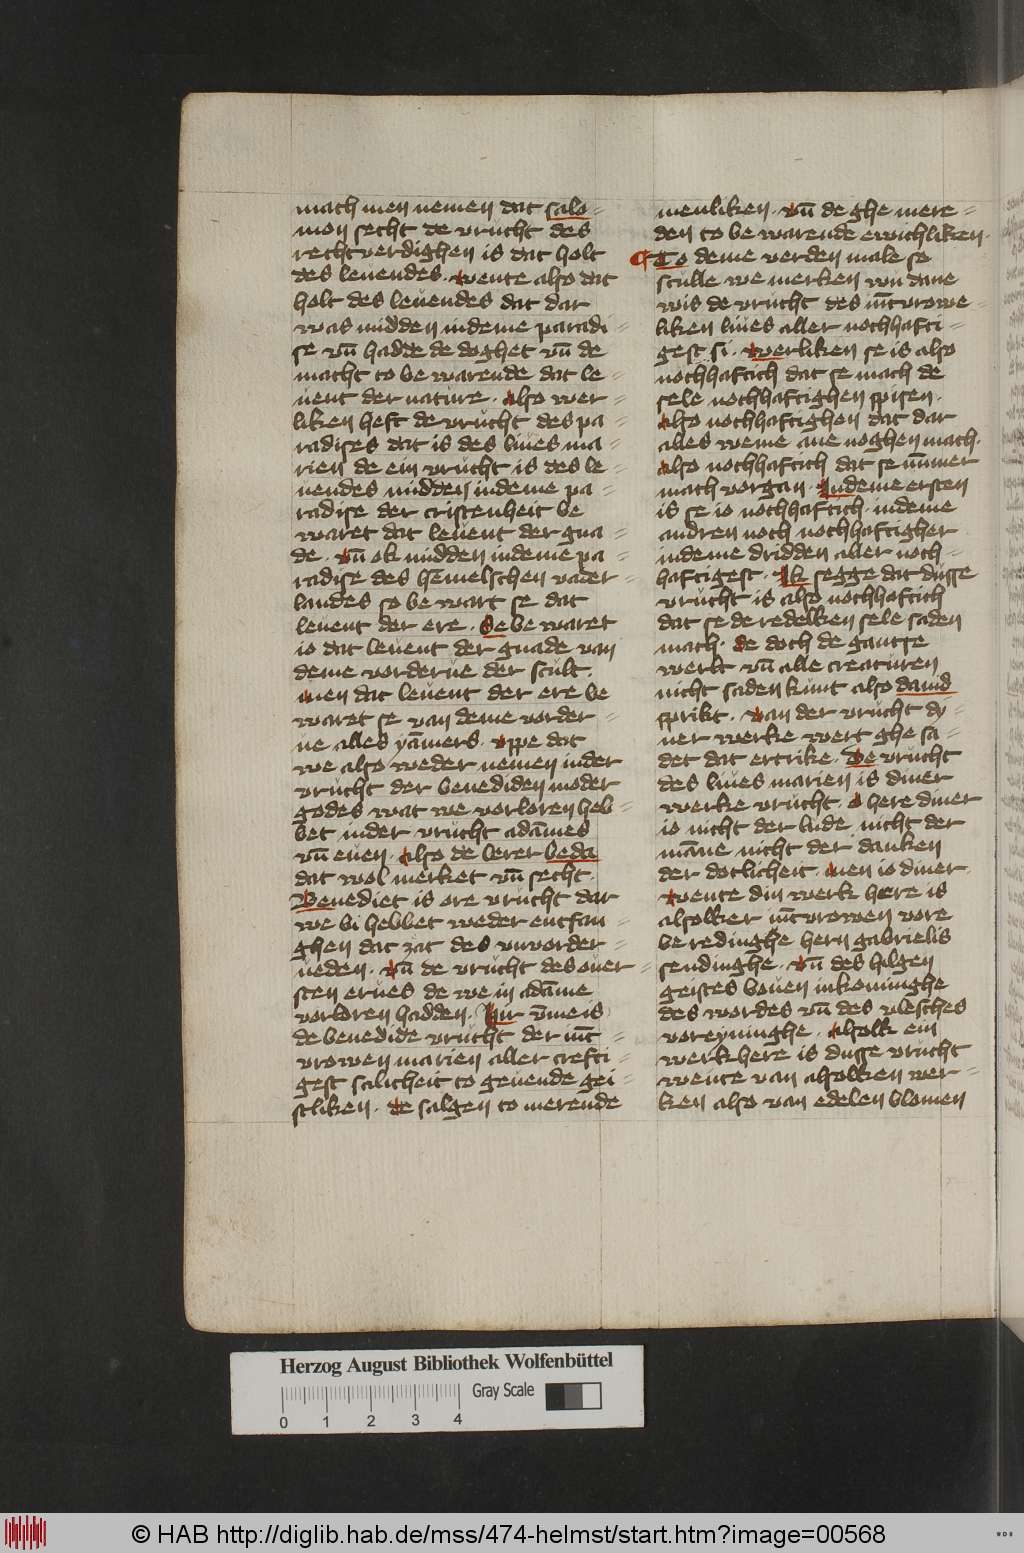 mach men nemen dat salo=
mon secht de vrucht des
rechtverdighen is dat holt
des leuendes. wente also dat
holt des leuendes dat dar
was midden indeme paradi=
se vn̄ hadde de doghet vn̄ de
macht to be warende dat le=
uent der nature. also wer=
liken heft de vrucht des pa=
radises dat is des liues ma=
rien de ein vrucht is des le=
uendes midden indeme pa=
radise der cristenheit be
waret dat leuent der gna=
de. vn̄ ok midden indeme pa=
radise des hēmelschen vader=
landes so be wart se dat
leuent der ere. Se be waret
io dat leuent der gnade van
deme vorderue der scult.
men dat leuent der ere be
waret se van deme vorder=
ue alles yāmers. vppe dat
we also weder nemen inder
vrucht der benediden moder
godes wat we vorloren heb=
bet inder vrucht adāmes
vn̄ euen. also de lerer beda
dat wol merket vn̄ secht.
Benediet is ore vrucht dar
we bi hebbet weder entfan=
ghen dat zat des vnvorder=
ueden. vn̄ de vrucht des ouer=
sten erues de we in adāme
vorloren hadden. Hir v̄me is
de benedide vrucht der iūc
vrowen marien aller crefti=
gest salicheit to geuende gei=
stliken. de salgen to merende
menliken. vn̄ de ghe mere=
den to be warende ewichliken.
¶ To deme verden male so
sculle we merken wu dane
wis de vrucht des iūcvrowe=
liken liues aller nochhafti=
gest si. werliken se is also
nochhaftich dat se mach de
sele nochhaftighen spisen.
also nochhaftighen dat dar
alles weme ane noghen mach.
also nochhaftich dat se nūmer
mach vorgan. Indeme ersten
is se io nochhaftich. indeme
andren noch nochhaftigher
indeme dridden aller noch=
haftigest. Ik segge dat dusse
vrucht is also nochhaftich
dat se de redelken sele saden
mach. de doch de gantse
werlt vn̄ alle creaturen
nicht saden kunt also dauid
sprikt. van der vrucht dy=
ner werke wert ghe sa=
det dat ertrike. De vrucht
des liues marien is diner
werke vrucht. o here diner
io nicht der lude nicht der
māne nicht der danken
der dotlicheit. men io diner.
wente din werk here is
alsolker iūcvrowen vore
be redinghe hern gabrielis
sendinghe. vn̄ des hilgen
geistes bouen inkominghe
des wordes vn̄ des vlesches
voreyninghe. alsolk ein
werk here is dusse vrucht
wente van alsolken wer=
ken also van edelen blomen
Herzog August Bibliothek Wolfenbüttel
0 1 2 3 4
Gray Scale
© HAB http://diglib.hab.de/mss/474-helmst/start.htm?image=00568
WDB